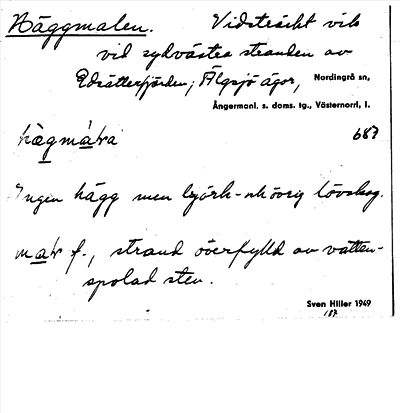 Häggmalen. Vidsträckt vik
vid sydvästra stranden av
Edsätterfjärden; Älgsjö ägor, Nordingrå sn,
Ångermanl. s. doms. tg., Västernorrl. l.
hägmàɽa 687
Ingen hägg men björk- och övrig lövskog.
maɽ f., strand överfylld av vatten-
spolad sten.
Sven Hiller 1949
187